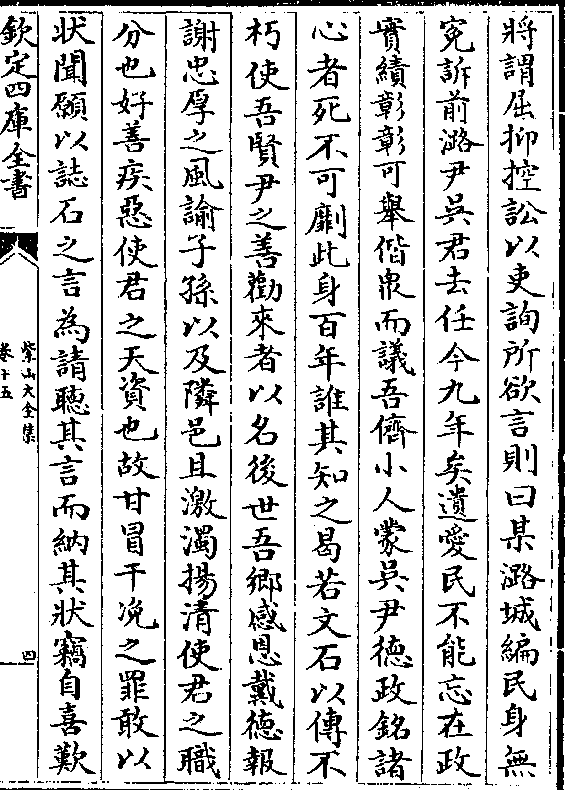 將謂屈抑控訟以吏詢所欲言則曰某潞城編民身無
寃訴前潞尹吳君去任今九年矣遺愛民不能忘在政
實績彰彰可舉偕衆而議吾儕小人蒙吳尹德政銘諸
心者死不可劘此身百年誰其知之曷若文石以傳不
朽使吾賢尹之善勸來者以名後世吾鄉感恩戴德報
謝忠厚之風諭子孫以及隣邑且激濁揚清使君之職
分也好善疾惡使君之天資也故甘冒干凂之罪敢以
狀聞願以誌石之言為請聽其言而納其狀竊自喜歎
欽定四庫全書
紫山大全集
卷十五
四